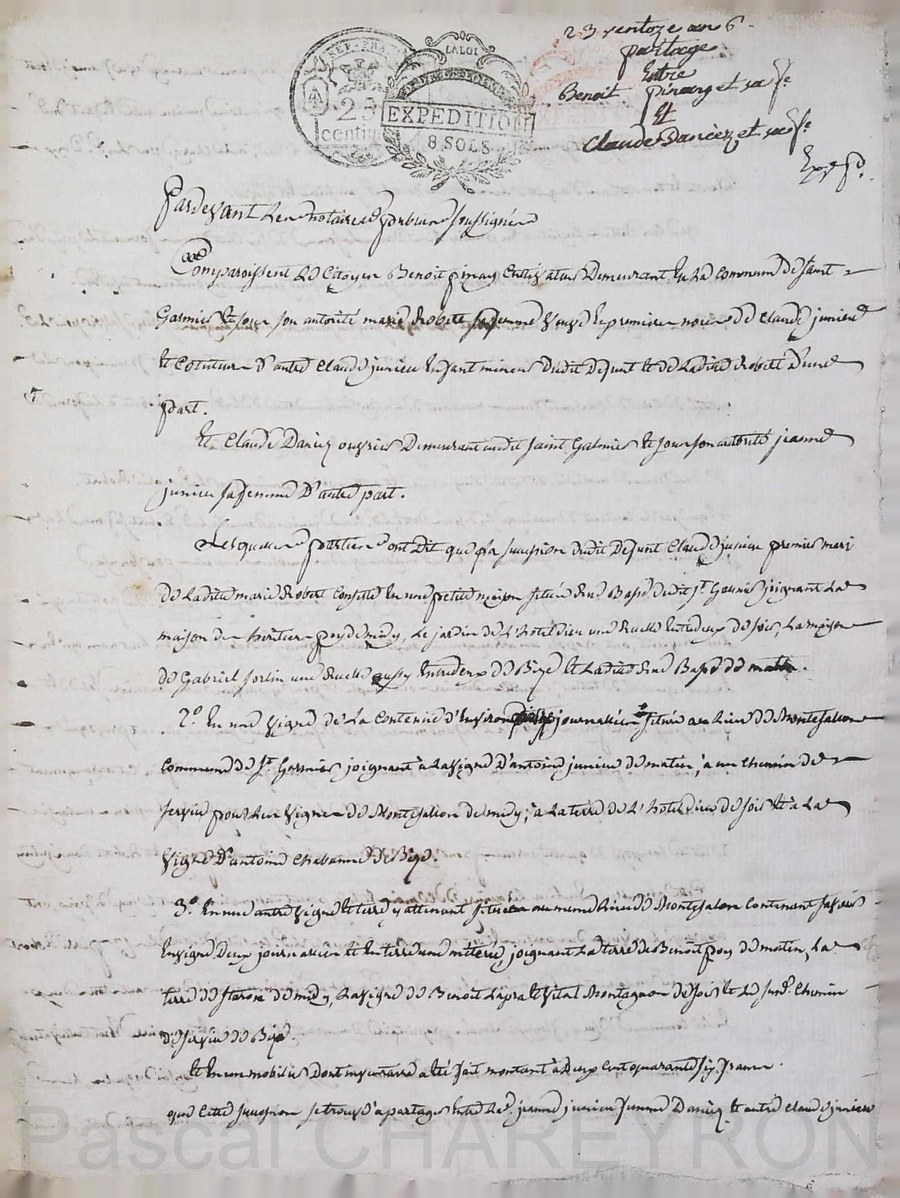 23 ventoze an 6
partage
Entre
Benoit pinay et sa fe
Et
Claude Danier et sa fe
Expd.
REP. FRA
25
centimes
LA LOI
EXPEDITION
8 SOLS
Pardevant Les notaires publics soussignés
Comparoissent Le Citoyen Benoit pinay Cultivateur Demeurant En La Commune de saint
Galmier Et sous son autorité marie Robert sa femme Veuve En premiere noces de Claude junien
Et Cotuteur D'autre Claude junieu Enfant mineur Dudit Defunt Et de Ladite Robert D'une
part.
Et Claude Danier ouvrier Demeurant audit saint Galmier Et sous son autorité jeanne
junieu sa femme D'autre part.
Lesquelles parties ont Dit que La succession dudit Defunt Claude junieu premier mari
de Ladite marie Robert Consiste En une petite maison située Rue Basse dudit St. Galmier joignant La
maison des heritiers poy de midy, Le jardin de L'hotel dieu une Ruelle Entredeux de soir, La maison
de Gabriel forlin une Ruelle aussy Entredeux de Bize Et Ladite Rue Basse de matin.
2o. En une Vigne de La Contenue d'Environ journalier située au Lieu de Montesallon
Commune de St. Galmier joignant à La Vigne D'antoine junieu de matin, a un chemin de
service pour Les Vignes de Montesallon de midy, à La terre de L'hotel dieu de soir Et à La
Vigne D'antoine Chabanne de Bize.
3o. En une autre Vigne Et terre y attenant située au meme Lieu de Montesalon Contenant savoir
En vigne Deux journaliers Et En terre une métérée, joignant La terre de Benoit poy de matin, La
terre de faron de midy, La Vigne de Benoit Lapra Et Vital Montagnon de soir Et Le susd. Chemin
de service de Bize.
Et En un mobilier Dont inventaire a Eté fait montant à Deux Cent quarante six francs.
que Cette succession se trouve a partager Entre Lad. jeanne junieu femme Danier, Et autre Claude junieu
Pascal CHAREYRON